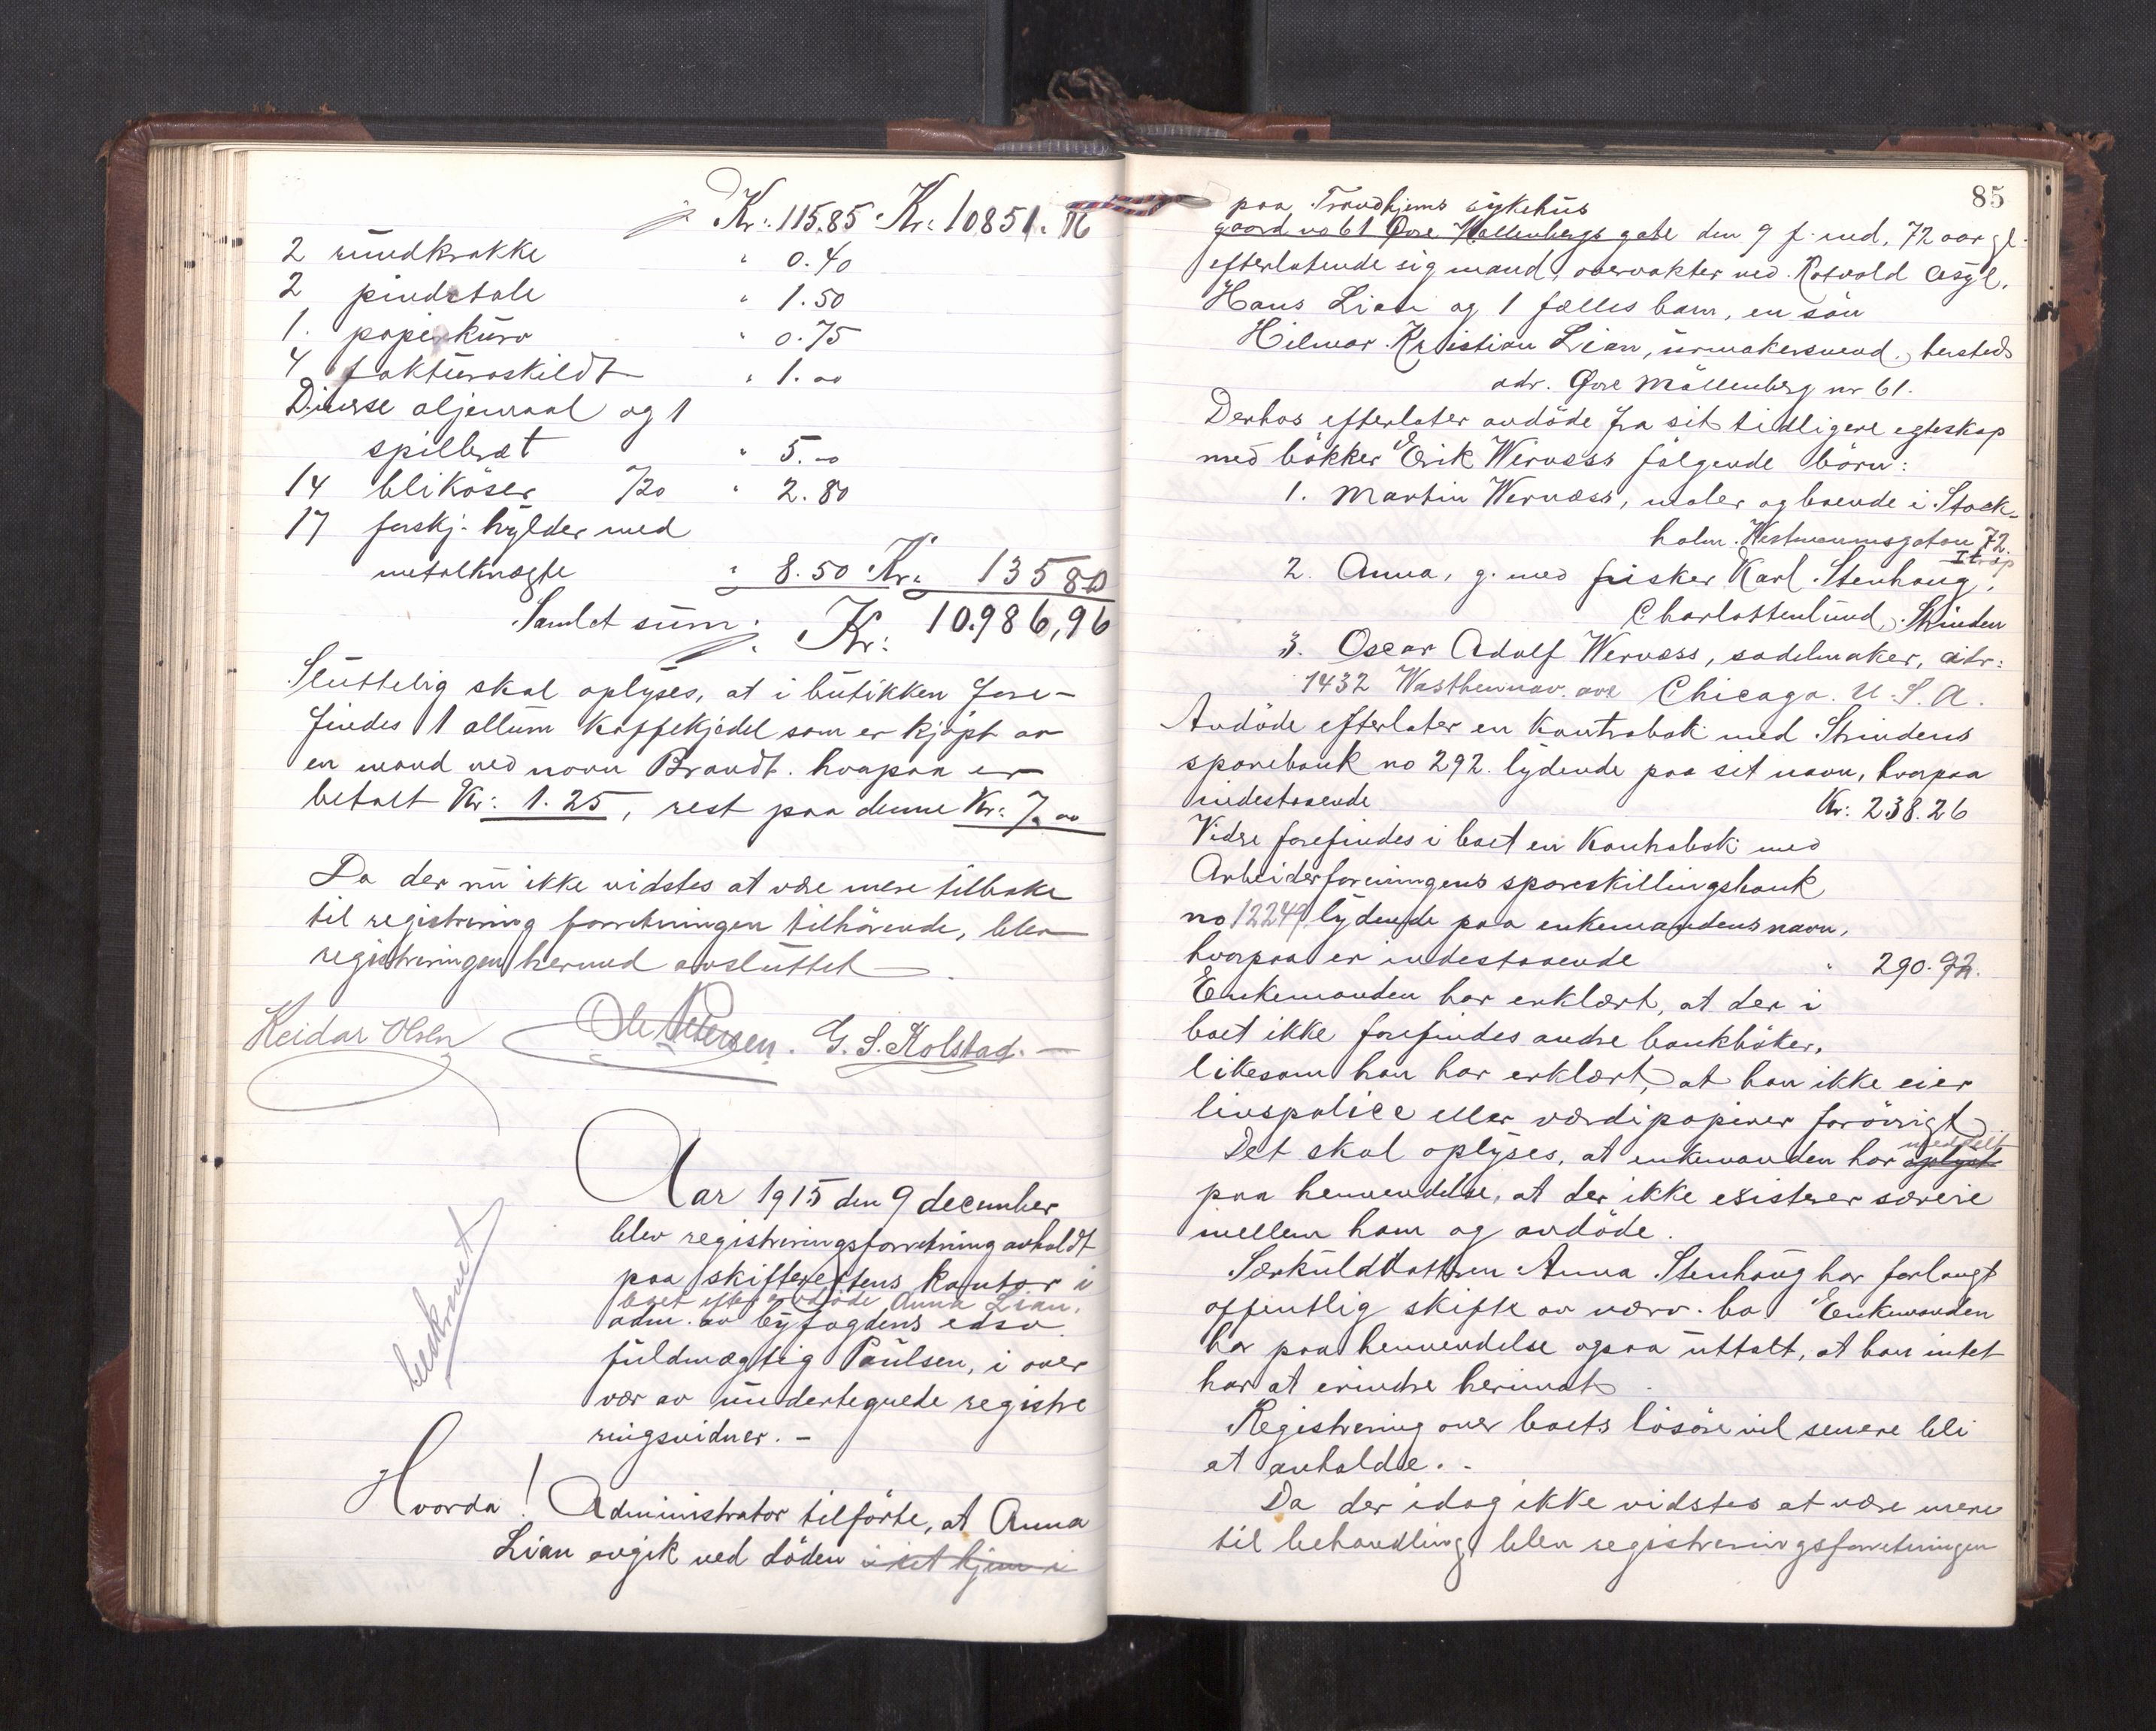 Kr: 115.85 Kr: 10851.16
2 rundkrakke " 0.40
2 pindstole " 1.50
1. papirkurv " 0.75
4 fakturaskildt " 1.00
Diverse oljemaal og 1
spilbræt " 5.00
14 blikdåser /20 " 2.80
17 forskj. hylder med
metalknægte " 8.50 Kr: 135 80
Samlet sum: Kr: 10.986,96
Sluttelig skal oplyses, at i butikken fore-
findes 1 allum kaffekjedel som er kjøpt av
en mand ved navn Brandt. hvorpaa er
betalt Kr: 1.25, rest paa denne Kr: 7.00
Da der nu ikke vidstes at være mere tilbake
til registrering forretningen tilhörende, blev
registreringen hermed avsluttet.
Reidar Olsen Ole Petersen. G. S. Kolstad. —
Aar 1915 den 9 december
blev registreringsforretning avholdt
paa skifterettens kontor i
boet efter avdöde Anna Lian,
adm. av byfogdens edsv.
fuldmægtig Paulsen, i over
vær av undertegnede registre
ringsvidner. -
beskrevet
Hvorda! Administrator tilförte, at Anna
Lian avgik ved döden i sit hjem i
85
paa Trondhjems sykehus
gaard no 61 Övre Möllenbergs gate den 9 f. md, 72 aar gl.
efterlatende sig mand, overvakter ved Rotvold Asyl,
Hans Lian og 1 fælles barn, en sön
Hilmar Kristian Lian, urmakersvend, hersteds
adr. Övre Möllenberg nr 61.
Derhos efterlater avdöde fra sit tidligere egteskap
med bökker Erik Wernæss fölgende börn:
1. Martin Wernæss, maler og boende i Stock-
holm. Westmannsgatan 72.
I trap
2. Anna, g. med fisker Karl Stenhaug,
Charlottenlund, Strinden
3. Oscar Adolf Wernæss, sadelmaker, adr:
1432 ave Chicago. U. S. A.
Avdöde efterlater en kontrabok med Strindens
sparebank no 292. lydende paa sit navn, hvorpaa
indestaaende Kr: 238.26
Videre forefindes i boet en kontrabok med
Arbeiderforeningens spareskillingsbank
no 12249 lydende paa enkemandens navn,
hvorpaa er indestaaende " 290.92.
Enkemanden har erklært, at der i
boet ikke forefindes andre bankböker,
likesom han har erklært, at han ikke eier
livspolice eller værdipapirer forövrigt.
meddelt
Det skal oplyses, at enkemanden har oplyst
paa henvendelse, at der ikke existerer særeie
mellem ham og avdöde.
Særkuldbattren Anna Stenhaug har forlangt
offentlig skifte av nærv. bo. Enkemanden
har paa henvendelse ogsaa uttalt, at han intet
har at erindre herimot.
Registrering over boets lösöre vil senere bli
at avholde. -
Da der idag ikke vidstes at være mere
til behandling blev registreringsforretningen